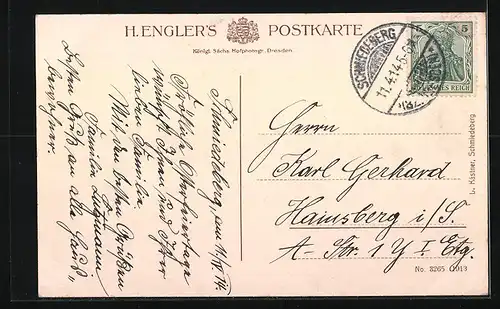 H. ENGLER'S POSTKARTE
Königl. Sächs. Hofphotogr. Dresden.
SCHMIEDEBERG
11.4.14.5-6N
5
DEUTSCHES REICH
Schmiedeberg, am 11/IV. 14.
Fröhliche Osterfeiertage
wünscht Ihnen und Ihrer
lieben Familie.
Mit den besten Grüßen
Familie
Besten Gruß an alle Haus-
bewohner.
Herrn
Karl Gerhard
Hainsberg i/S.
A- Str. 1 Y I Etg.
L. Kästner, Schmiedeberg
No. 3265 (1913